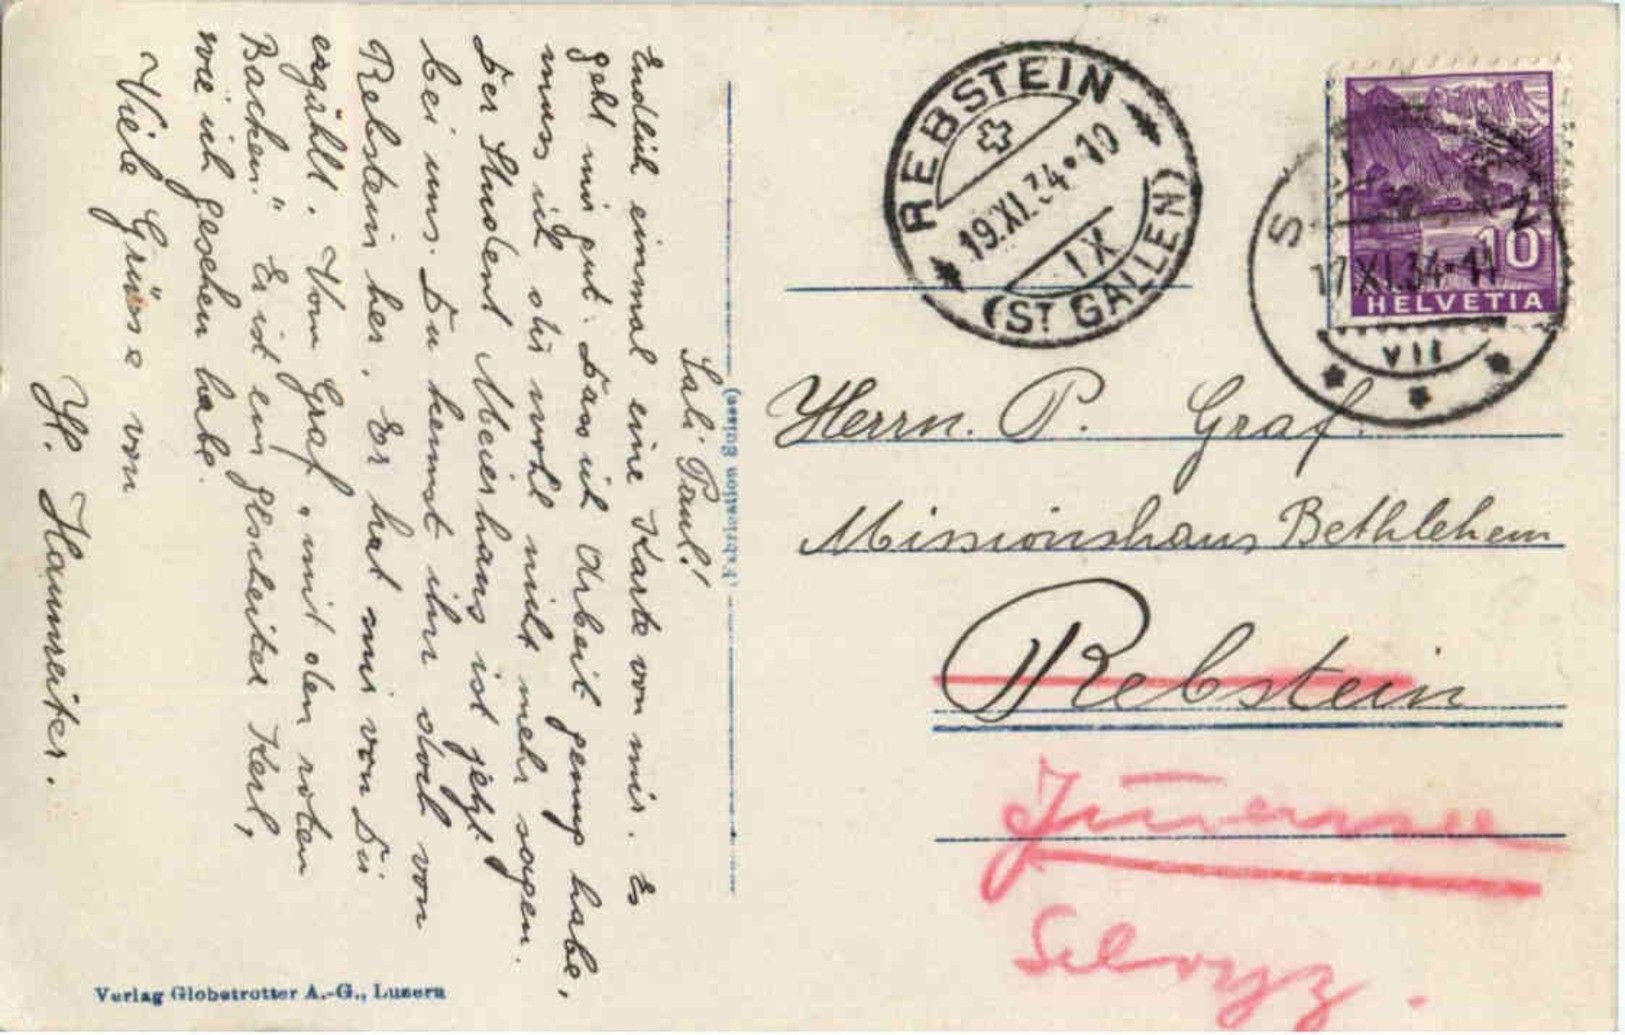 Sali Paul!
Endlich einmal eine Karte von mir. Es
geht mir gut. Dass ich Arbeit genug habe,
muss ich dir wohl nicht mehr sagen.
Der Student Meierhans ist jetzt
bei uns. Du kennst ihn doch von
Rebstein her. Er hat mir von Dir
erzählt. Vom Graf „mit den roten
Backen." Er ist ein gscheiter Kerl,
wie ich gesehen habe.
Viele Grüsse von
H.
Verlag Globetrotter A.-G., Luzern
(Fabrication suisse)
REBSTEIN
19.XI.34·10
IX
(ST GALLEN)
17.XI.34·11
VII
10
HELVETIA
Herrn. P. Graf.
Missionshaus Bethlehem
Rebstein
Immensee
Schwyz.